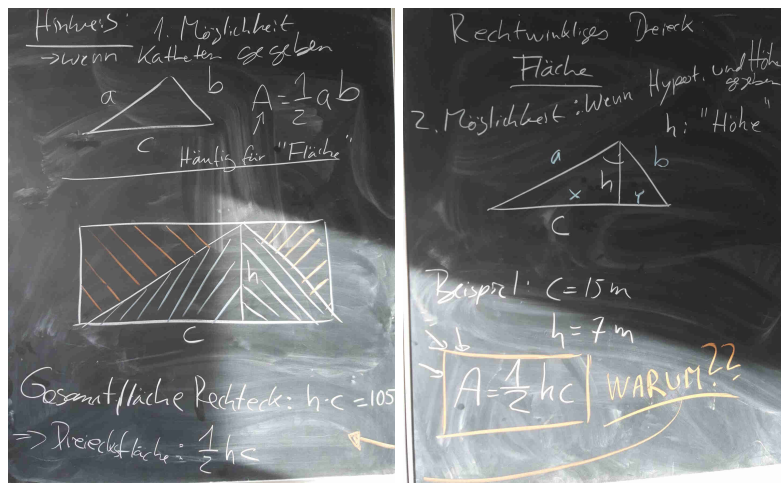 Hinweis: 1. Möglichkeit
→ wenn Katheten gegeben
a
b
c
A = 1/2 ab
Häufig für "Fläche"
h
c
Gesamtfläche Rechteck: h·c = 105
⇒ Dreiecksfläche: 1/2 hc
Rechtwinkliges Dreieck
Fläche
2. Möglichkeit: Wenn Hypot. und Höhe
gegeben
h: "Höhe"
a
b
h
x
y
c
Beispiel: c = 15 m
h = 7 m
A = 1/2 hc
WARUM??